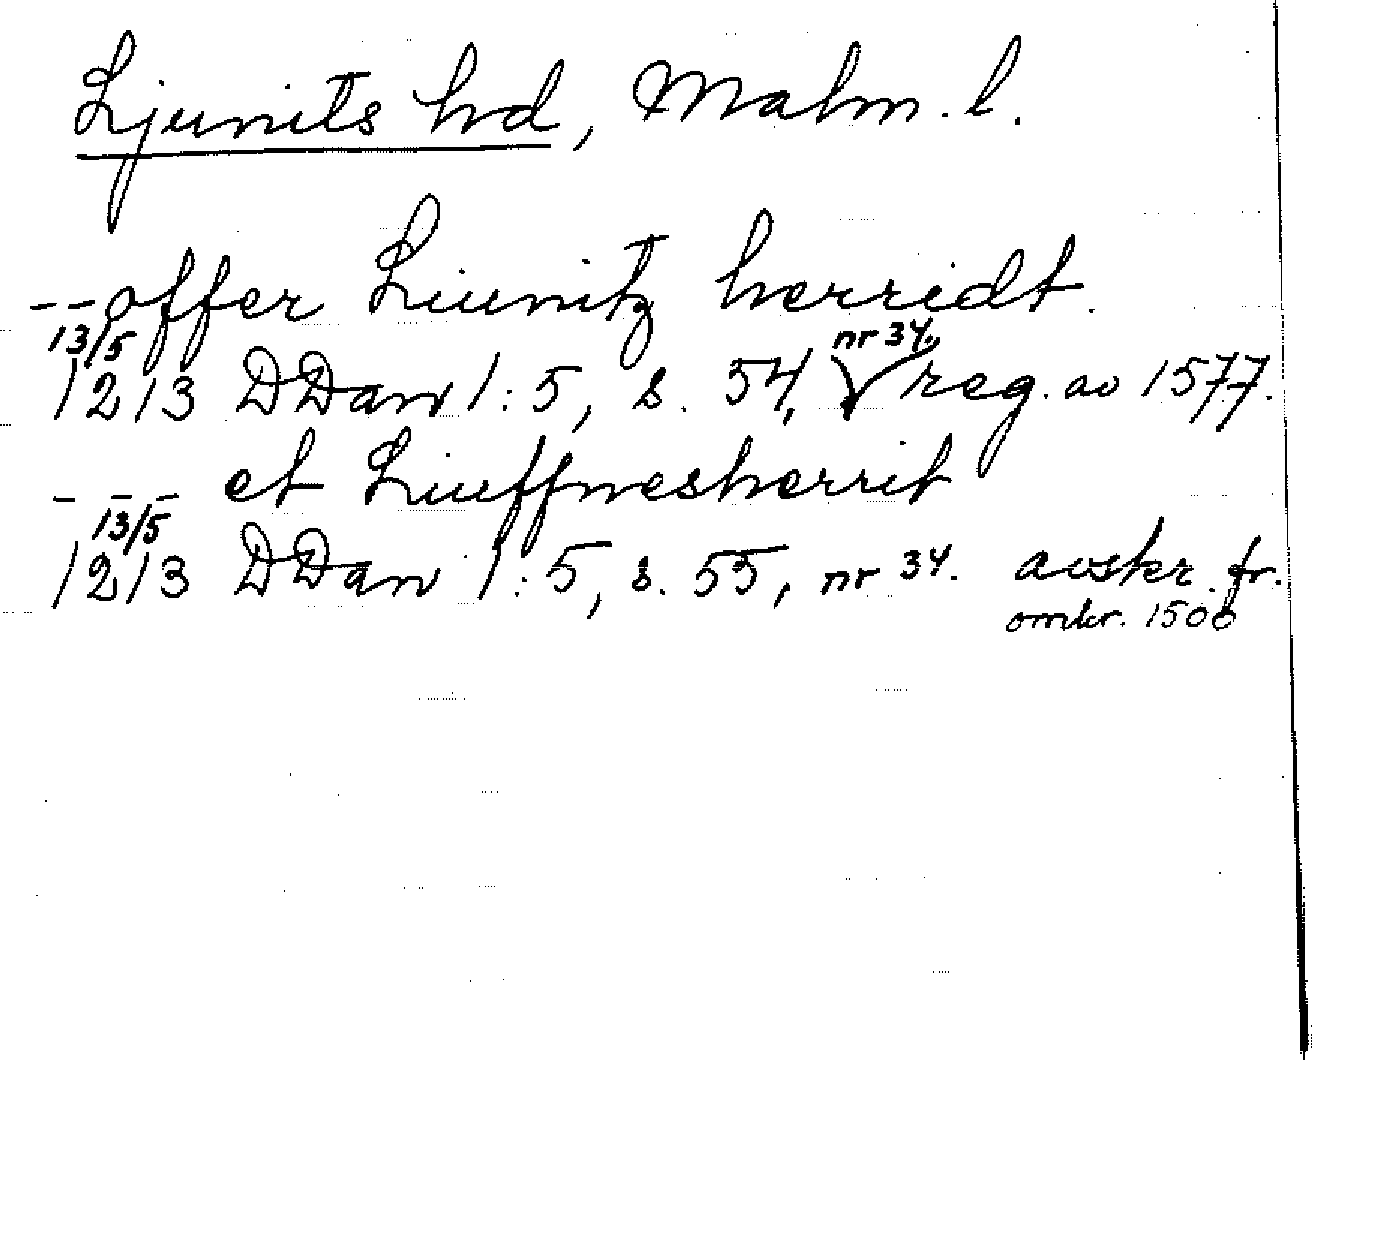 Ljunits hd, Malm. l.
-- offer Liunitz herridt.
13/5
1213 DDan 1:5, s. 54, nr 34, reg. av 1577.
- - - et Liuffnesherrit
13/5
1213 DDan 1:5, s. 55, nr 34. avskr. fr.
omkr. 1500